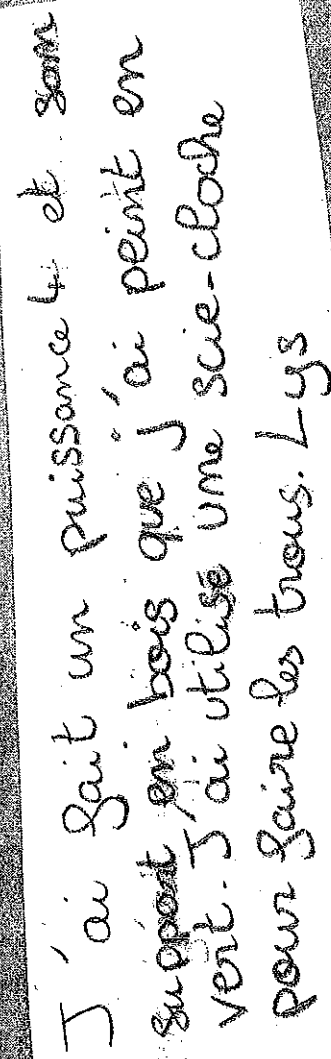 J'ai fait un puissance 4 et son
support en bois que j'ai peint en
vert. J'ai utilisé une scie-cloche
pour faire les trous. Lys